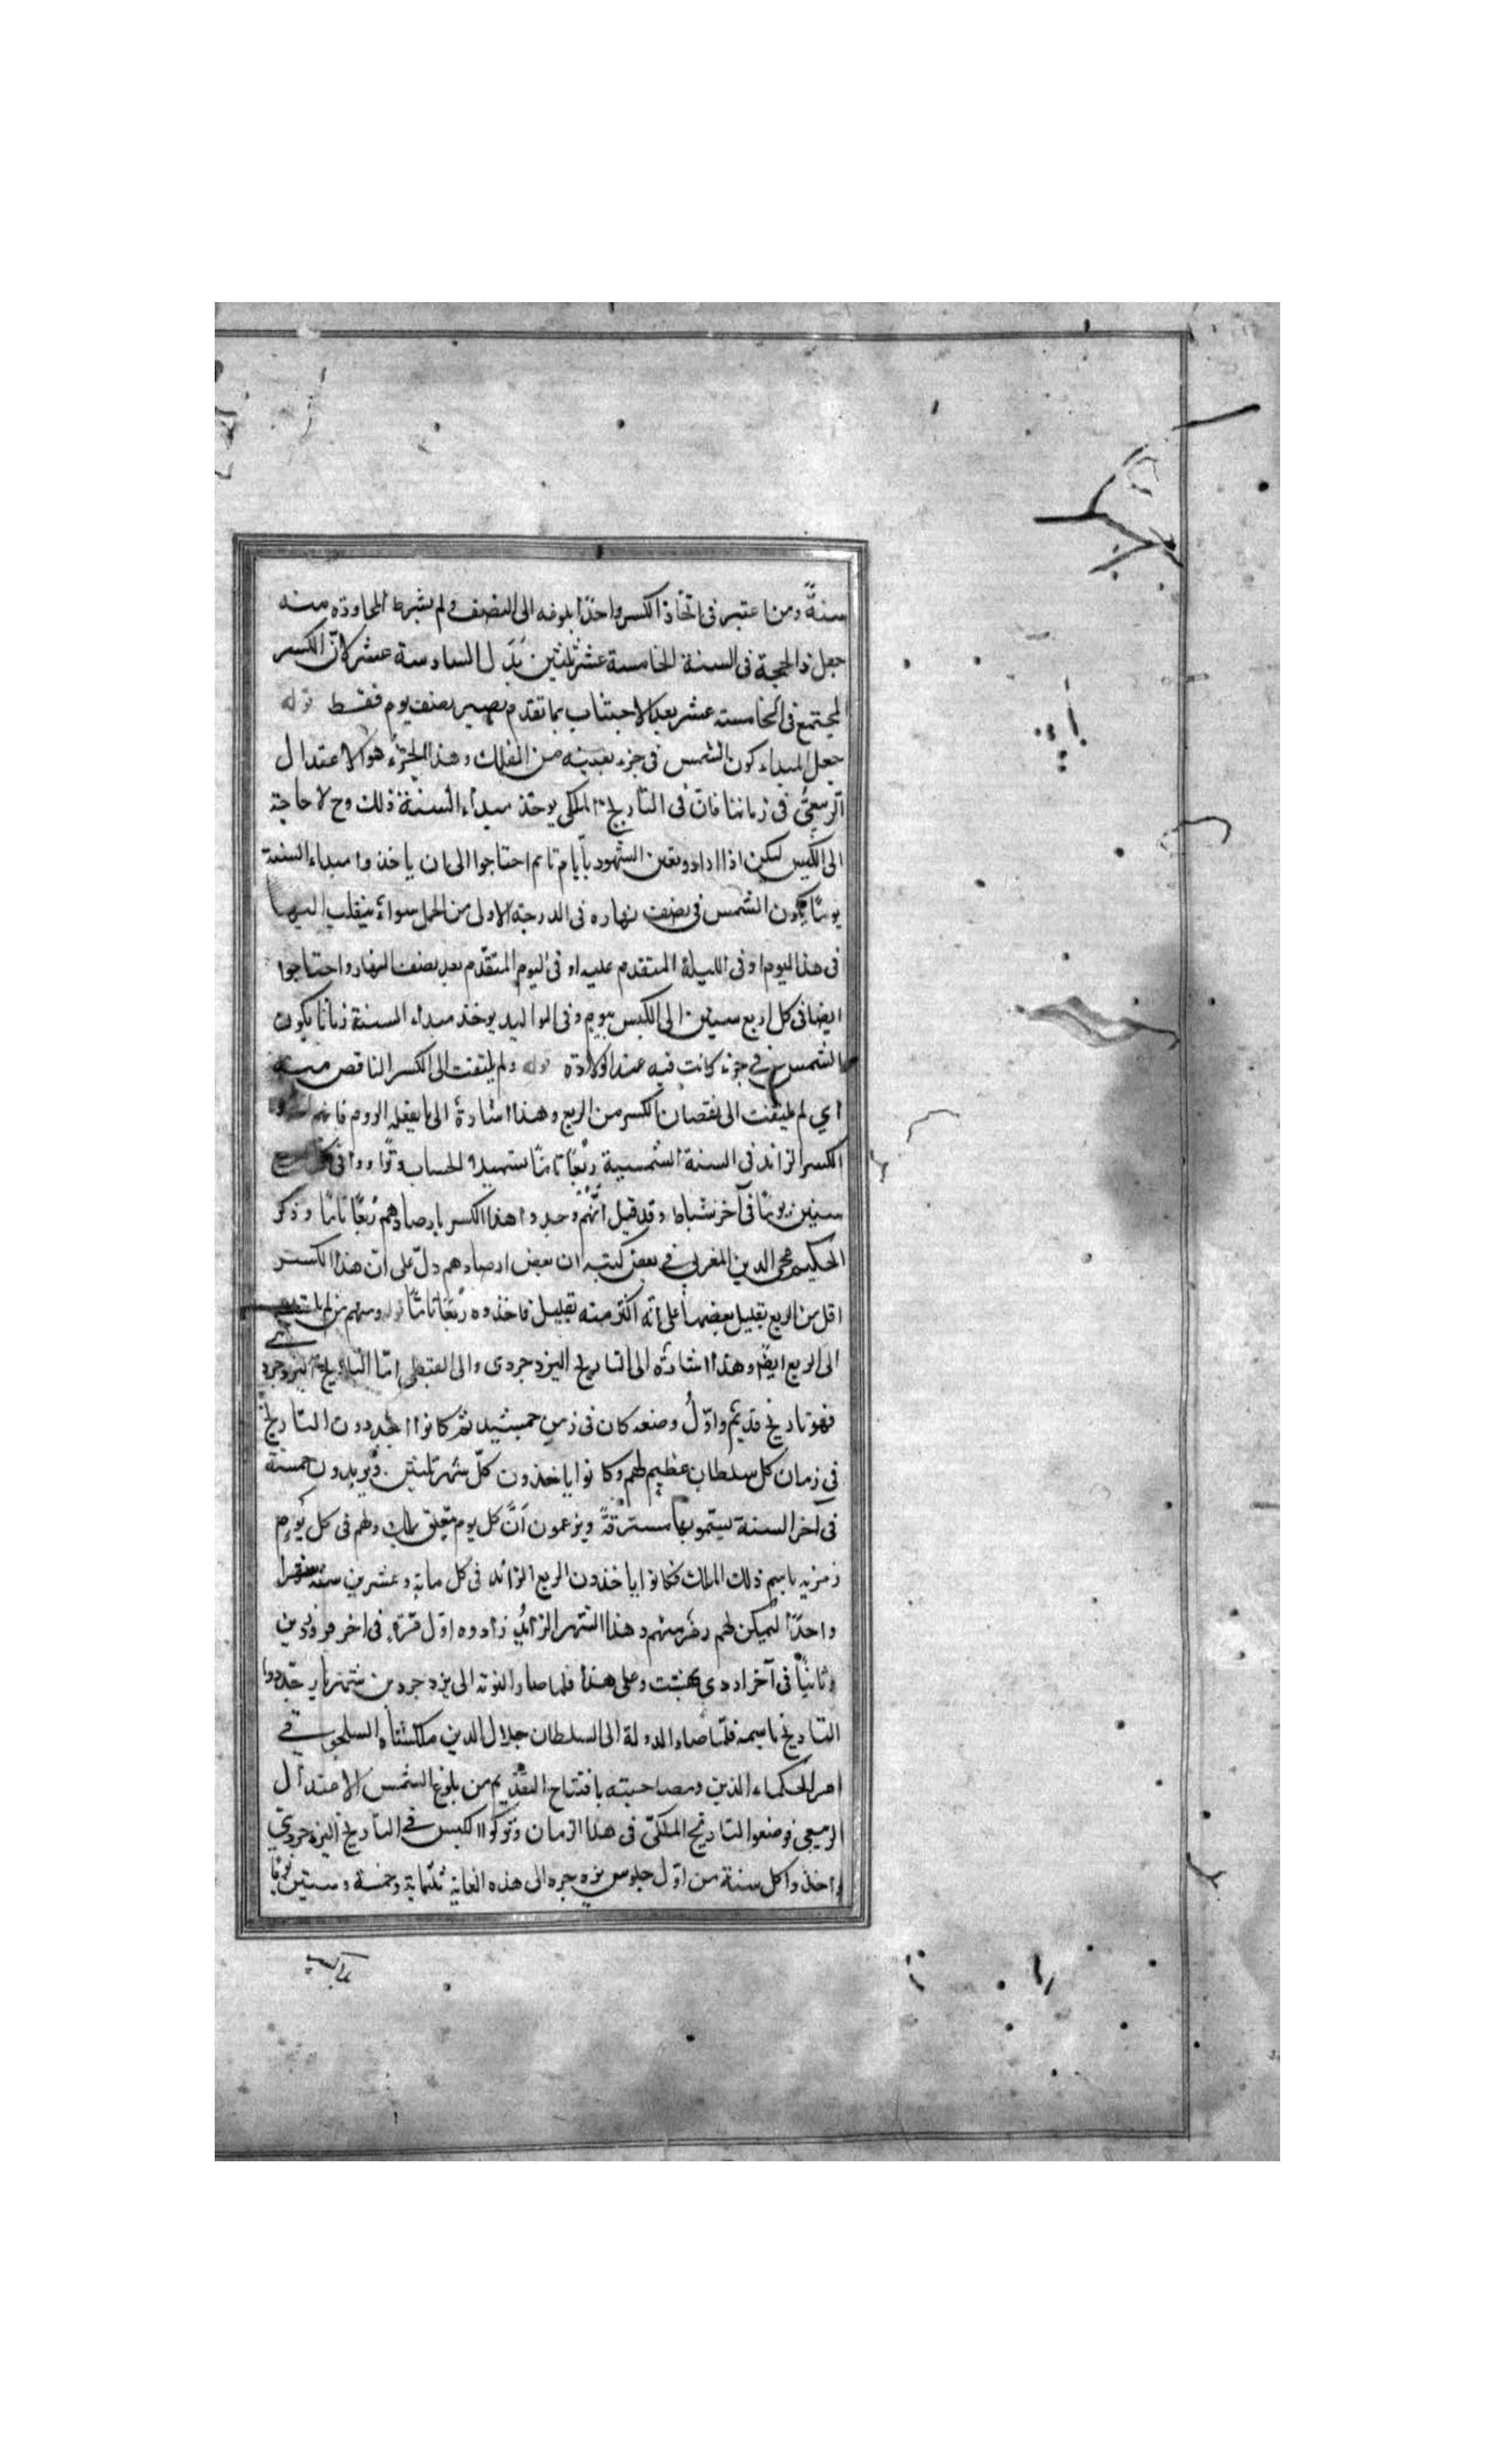 سنةً ومن اعتبر فى اتخاذ الكسر واحدًا بلوغه الى النصف ولم يشترط المجاوزه منه
جعل ذا لحجة فى السنة الخامسة عشر ثلثين بَدَل السادسة عشر لانّ الكسر
المجتمع فى الخامسة عشر بعد الاجتناب بما تقدم يصير نصف يوم فقط قوله
جعل المبداء كون الشمس فى جزء بعينه من الفلك وهذا الجزء هو الاعتدال
الربيعىّ فى زماننا فان فى التاريخ الملكى يوخذ مبداء السنة ذلك وح لا حاجة
الى الكبس لكن اذا ارادو تعين الشهود بأيام تامه احتاجوا الى ان ياخذوا مبداء السنة
يومًا يكون الشمس فى نصف نهاره فى الدرجة الاولى من الحمل سواء ينقلب اليها
فى هذا اليوم او فى الليلة المتقدم عليه او فى اليوم المتقدم بعد نصف النهار واحتاجوا
ايضا فى كل اربع سنين الى الكبس بيوم وفى المواليد يوخذ مبداء السنة زمانا يكون
الشمس فى جزء كانت فيه عند الولادة قوله ولم يلتفت الى الكسر الناقص منه
اي لم يلتفت الى نقصان الكسر من الربع وهذا اشارة الى ما يفعله الروم فانهم
الكسر الزائد فى السنة الشمسية ربعًا تامًا تسهيلا للحساب وزادوا فى كل اربع
سنين يومًا فى آخر شباط وقد قيل انّهم وجدوا هذا الكسر بارصادهم رُبعًا تامًا وذكر
الحكيم محى الدين المغربى فى بعض كتبه ان بعض ارصادهم دلّ على انّ هذا الكسر
اقل من الربع بقليل بعضها على أنه اكثر منه بقليل فاخذوه رُبعًا تامًّا قوله ومنهم من لم يلتفت
الى الربع ايضًا وهذا اشارة الى التاريخ اليزدجردى والى القبطى امّا التاريخ اليزدجرد
فهو تاريخ قديم واوّلُ وضعه كان فى زمن جمشيد ثم كانوا يجددون التاريخ
فى زمان كل سلطان عظيم لهم وكانوا ياخذون كلّ شهر ثلثين ويزيدون خمسة
فى آخر السنة يسمّونها مسترقةً ويزعمون أنَّ كل يوم متعلق بملك ولهم فى كل يوم
زمزمه باسم ذلك الملك فكانوا ياخذون الربع الزائد فى كل مايه وعشرين سنه شهرا
واحدًا ليمكن لهم زمزمتهم وهذا الشهر الزائد زادوه اوّل مرّة فى اخر فروردين
وثانيًا فى آخر اردى بهشت وعلى هذا فلما صار النوبة الى يزدجرد بن شهريار جدّدوا
التاريخ باسمه فلمّا صار الدولة الى السلطان جلال الدين ملكشاه السلجوقى
امر الحكماء الذين وصاحبته بافتتاح التقديم من بلوغ الشمس الاعتدال
الربيعى فوضعوا التاريخ الملكىّ فى هذا الزمان وتركوا الكبس فى التاريخ اليزدجردى
واخذوا كل سنة من اوّل جلوس يزدجرد الى هذه الغاية ثلثمائة وخمسة وستين يومًا